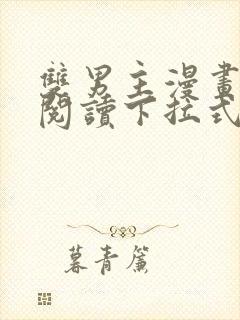 雙男主漫畫
閱讀下拉式
暮青簾